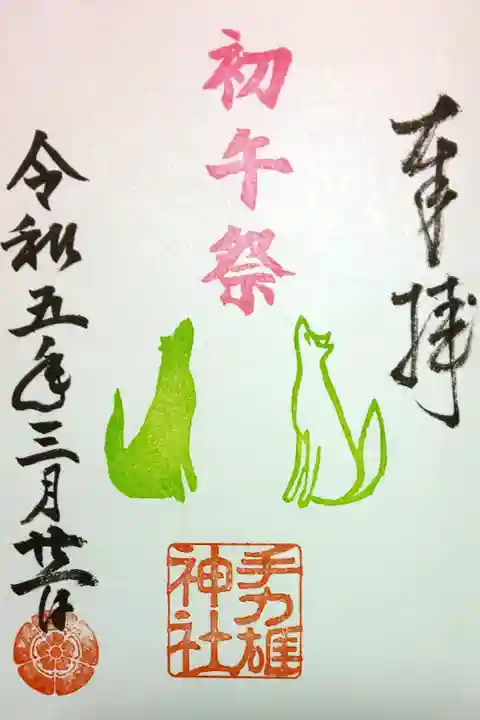 奉拝
初午祭
手力雄
神社
令和五年三月廿一日